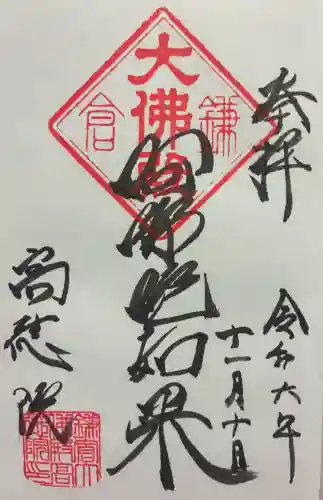 奉拝
令和六年
十一月十日
鎌倉
大佛殿
阿弥陀如来
高徳院